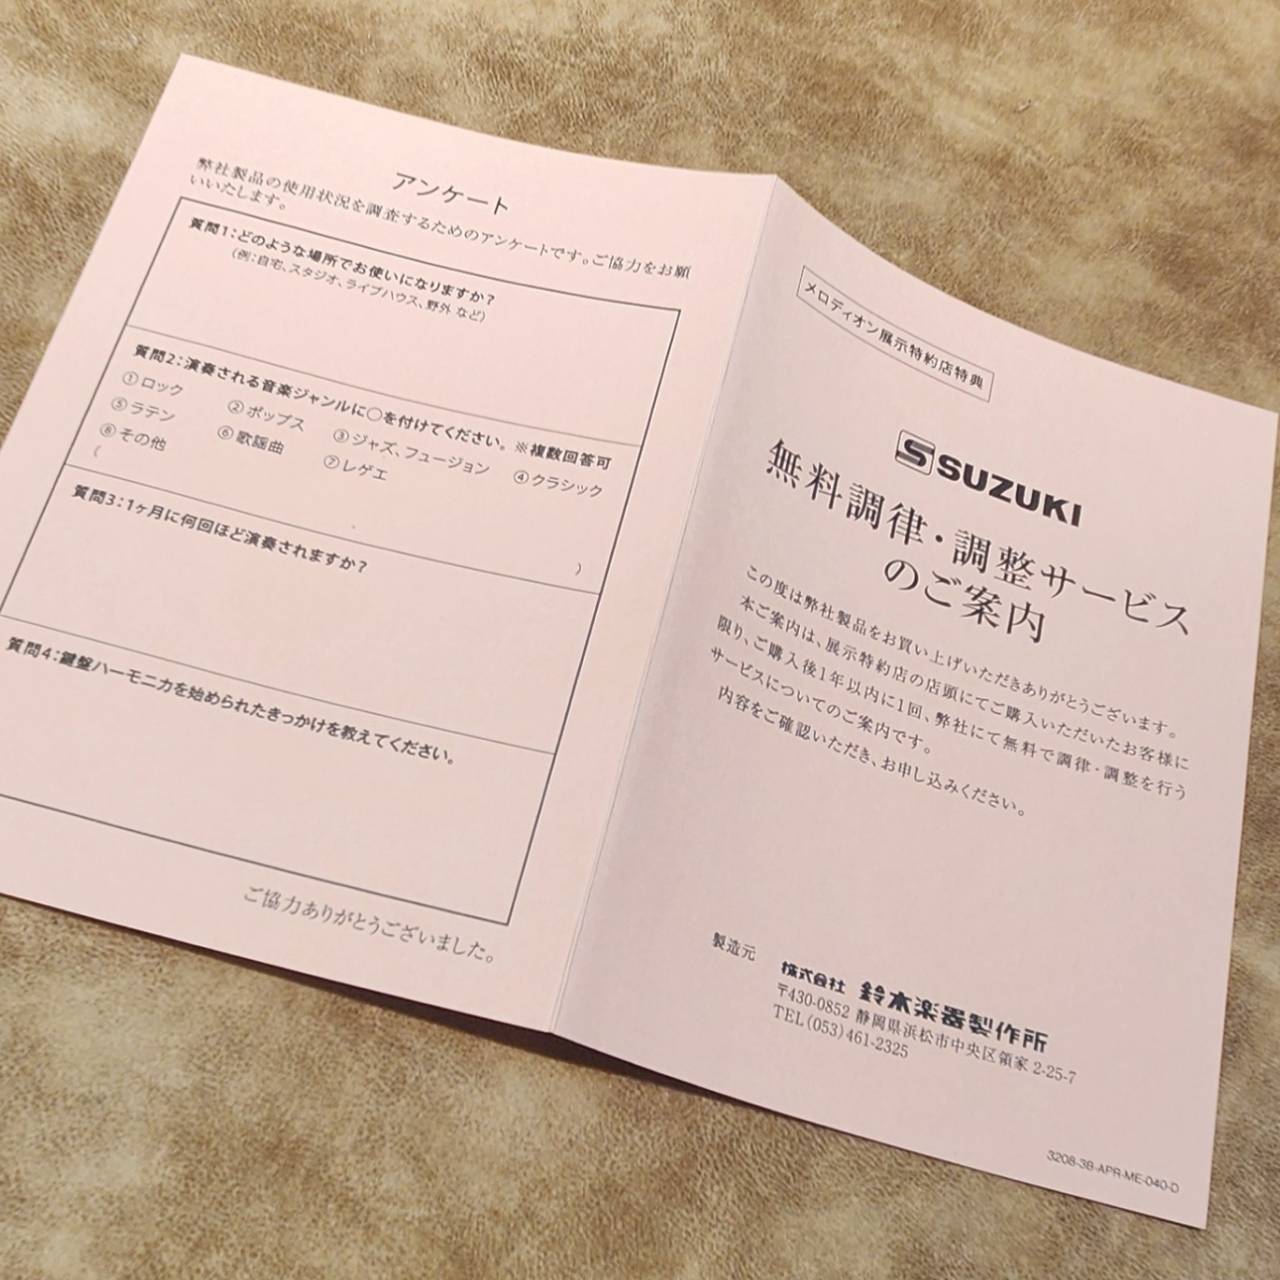 アンケート
弊社製品の使用状況を調査するためのアンケートです。ご協力をお願
いいたします。
質問1：どのような場所でお使いになりますか？
（例：自宅、スタジオ、ライブハウス、野外 など）
質問2：演奏される音楽ジャンルに○を付けてください。※複数回答可
①ロック ②ポップス ③ジャズ、フュージョン ④クラシック
⑤ラテン ⑥歌謡曲 ⑦レゲエ
⑧その他
（ ）
質問3：1ヶ月に何回ほど演奏されますか？
質問4：鍵盤ハーモニカを始められたきっかけを教えてください。
ご協力ありがとうございました。
メロディオン展示特約店特典
SUZUKI
無料調律・調整サービス
のご案内
この度は弊社製品をお買い上げいただきありがとうございます。
本ご案内は、展示特約店の店頭にてご購入いただいたお客様に
限り、ご購入後1年以内に1回、弊社にて無料で調律・調整を行う
サービスについてのご案内です。
内容をご確認いただき、お申し込みください。
製造元 株式会社 鈴木楽器製作所
〒430-0852 静岡県浜松市中央区領家 2-25-7
TEL (053) 461-2325
3208-3B-APR-ME-040-D